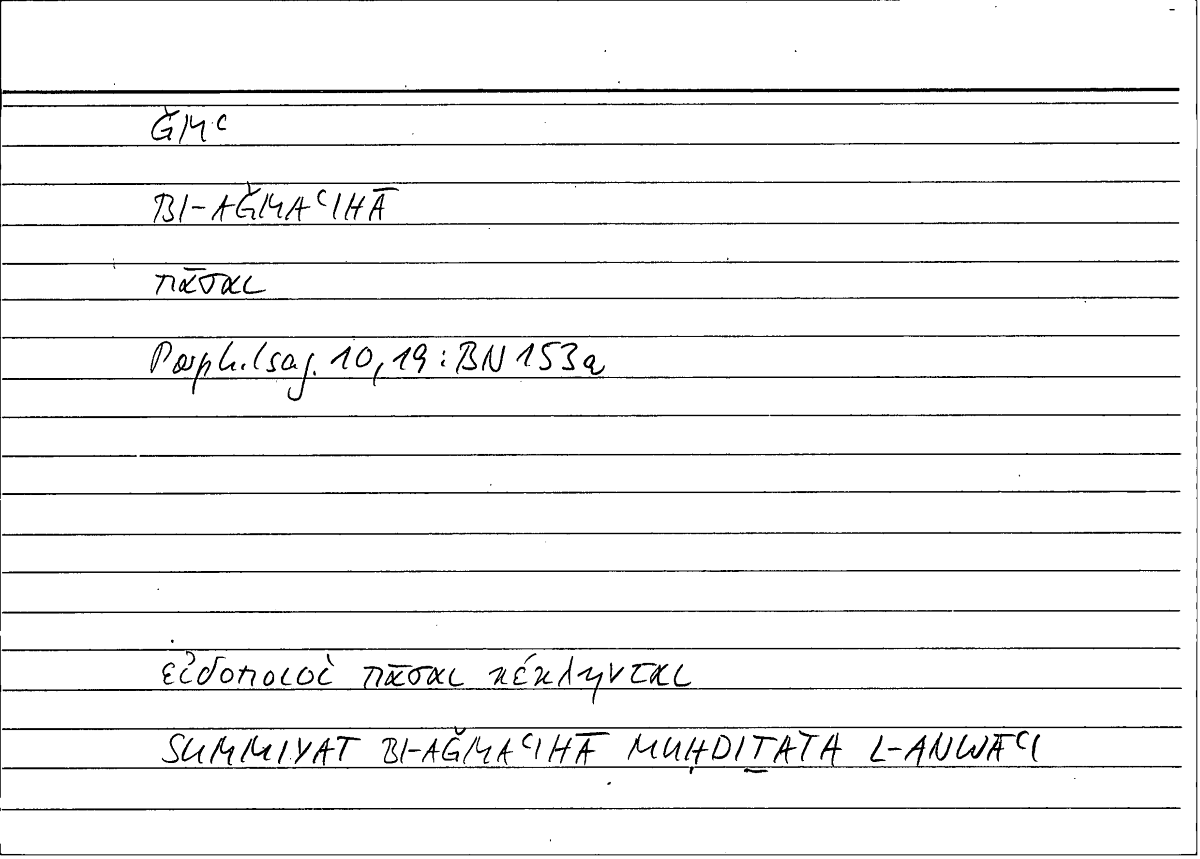 ǦMʿ
BI-AǦMAʿIHĀ
πᾶσαι
Porph.Isag. 10,19 : BN 153a
εἰδοποιοὶ πᾶσαι κέκληνται
SUMMIYAT BI-AǦMAʿIHĀ MUḤDIṮATA L-ANWĀʿI